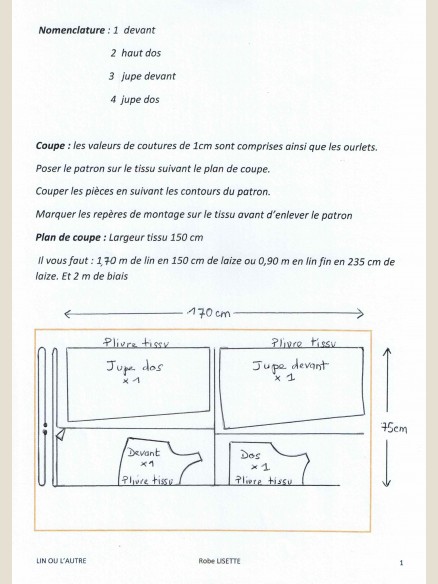 Nomenclature : 1 devant
2 haut dos
3 jupe devant
4 jupe dos
Coupe : les valeurs de coutures de 1cm sont comprises ainsi que les ourlets.
Poser le patron sur le tissu suivant le plan de coupe.
Couper les pièces en suivant les contours du patron.
Marquer les repères de montage sur le tissu avant d'enlever le patron
Plan de coupe : Largeur tissu 150 cm
Il vous faut : 1,70 m de lin en 150 cm de laize ou 0,90 m en lin fin en 235 cm de
laize. Et 2 m de biais
170 cm
Pliure tissu Pliure tissu
Jupe dos
x 1
Jupe devant
x 1
75cm
Devant
x1
Pliure tissu
Dos
x 1
Pliure tissu
LIN OU L'AUTRE Robe LISETTE 1